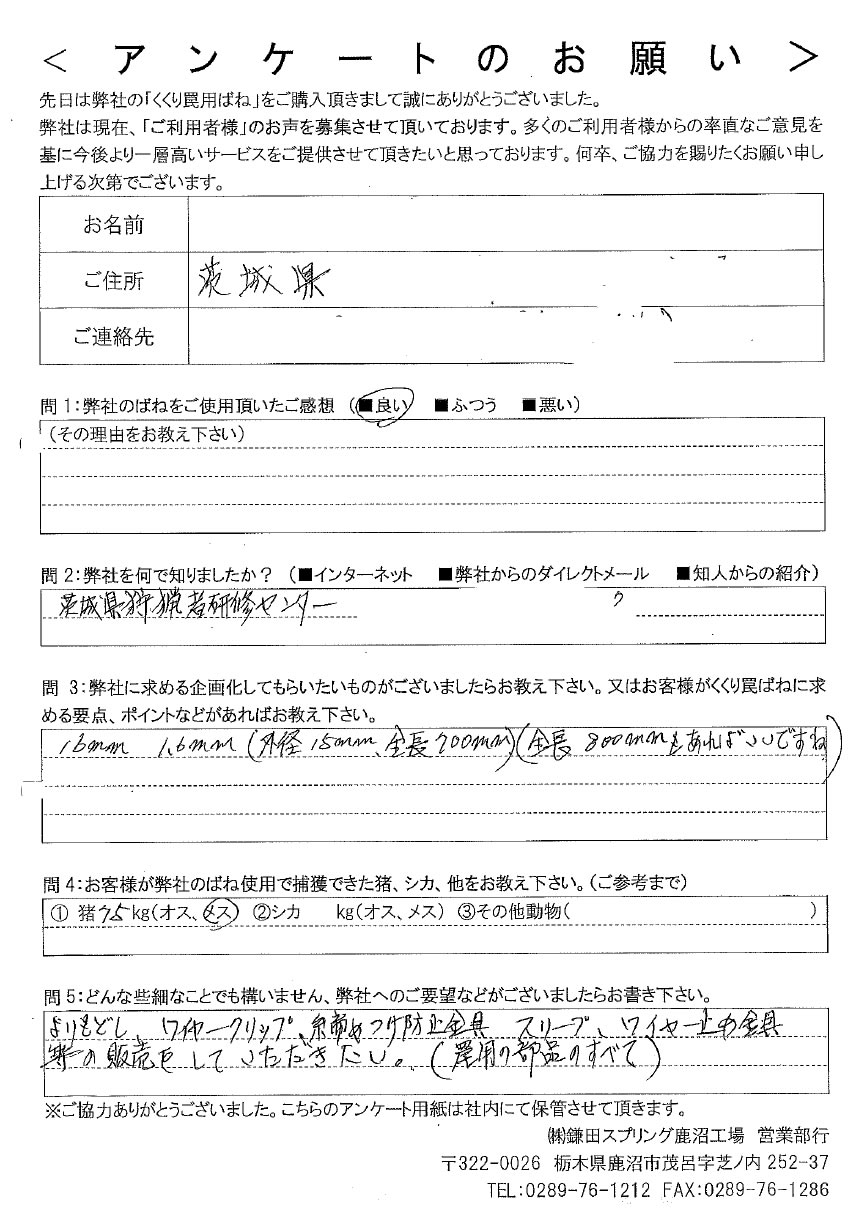 ＜アンケートのお願い＞
先日は弊社の「くくり罠用ばね」をご購入頂きまして誠にありがとうございました。
弊社は現在、「ご利用者様」のお声を募集させて頂いております。多くのご利用者様からの率直なご意見を
基に今後より一層高いサービスをご提供させて頂きたいと思っております。何卒、ご協力を賜りたくお願い申し
上げる次第でございます。
お名前
ご住所 茨城県
ご連絡先
問1：弊社のばねをご使用頂いたご感想 （■良い ■ふつう ■悪い）
（その理由をお教え下さい）
問2：弊社を何で知りましたか？ （■インターネット ■弊社からのダイレクトメール ■知人からの紹介）
茨城県狩猟者研修センター
問 3：弊社に求める企画化してもらいたいものがございましたらお教え下さい。又はお客様がくくり罠ばねに求
める要点、ポイントなどがあればお教え下さい。
16mm 1.6mm (外径15mm、全長700mm)(全長 800mmもあればいいですね)
問4：お客様が弊社のばね使用で捕獲できた猪、シカ、他をお教え下さい。（ご参考まで）
① 猪75kg（オス、メス） ②シカ kg（オス、メス） ③その他動物（ ）
問5：どんな些細なことでも構いません、弊社へのご要望などがございましたらお書き下さい。
よりもどし、ワイヤークリップ、締めつけ防止金具 スリーブ、ワイヤー止め金具
等の販売をしていただきたい。(罠用の部品のすべて)
※ご協力ありがとうございました。こちらのアンケート用紙は社内にて保管させて頂きます。
㈱鎌田スプリング鹿沼工場 営業部行
〒322-0026 栃木県鹿沼市茂呂字芝ノ内 252-37
TEL:0289-76-1212 FAX:0289-76-1286